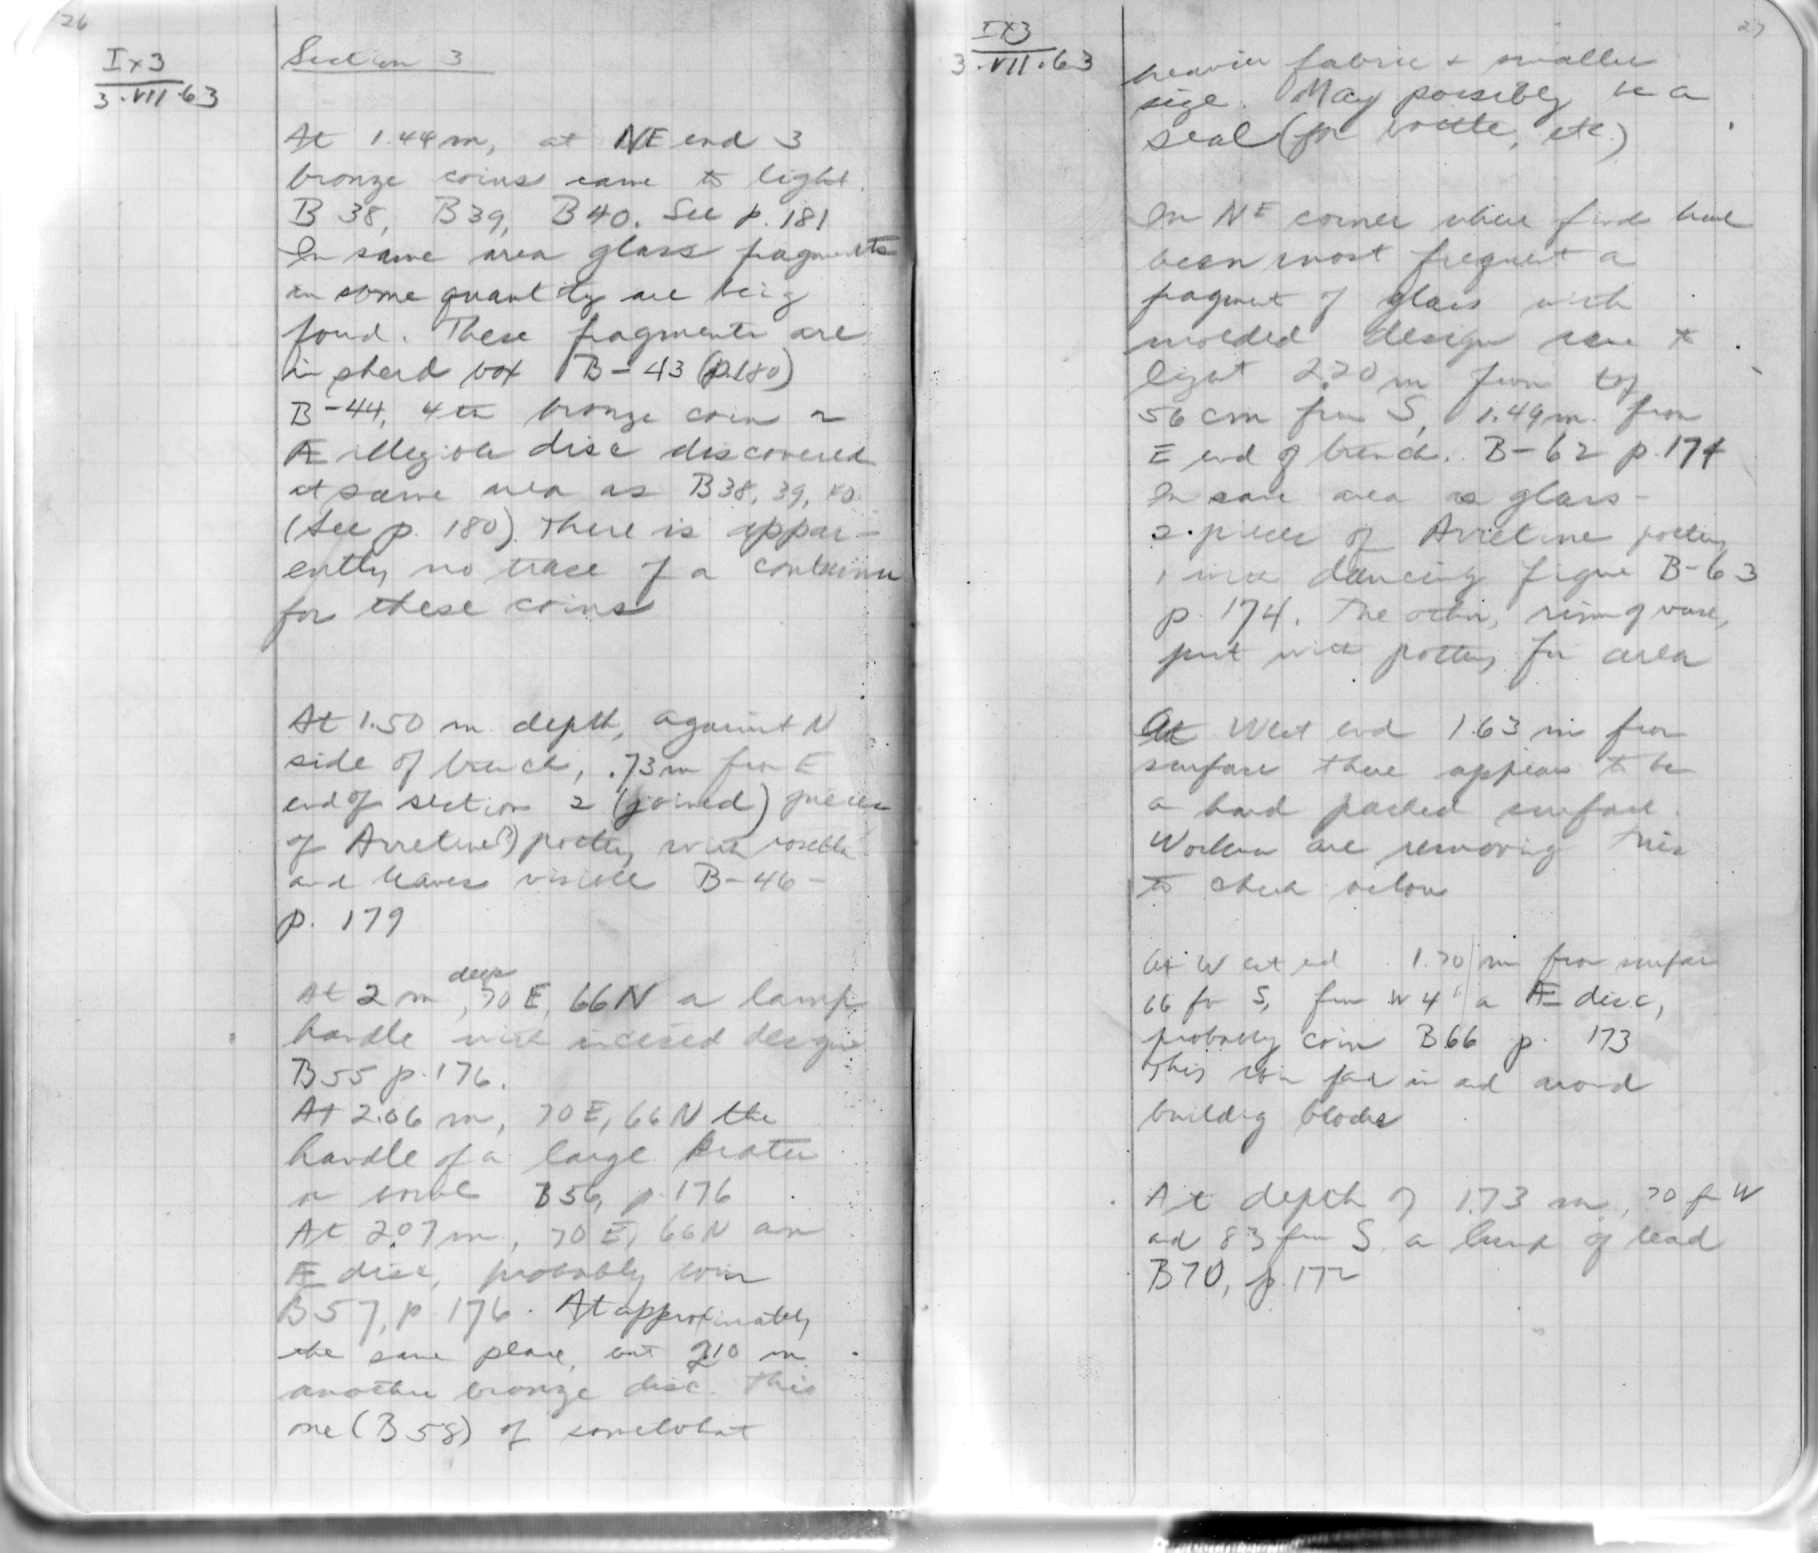 26
I x 3
3.VII.63
Section 3
At 1.44 m, at NE end 3
bronze coins came to light.
B 38, B39, B40. See p. 181
In same area glass fragments
in some quantity are being
found. These fragments are
in sherd box B-43 (p.180)
B-44, 4th bronze coin or
Æ illegible disc discovered
at same area as B38, 39, 40.
(See p. 180). There is appar-
ently no trace of a container
for these coins
At 1.50 m depth, against N
side of trench, .73m from E
end of section 2 (joined) pieces
of Arretine(?) pottery with rosette
and leaves visible B-46-
p. 179
At 2 m deep, 70 E, 66N a lamp
handle with incised design
B55 p.176.
At 2.06 m, 70 E, 66 N the
handle of a large krater
or bowl B56, p.176
At 2.07 m, 70 E, 66N an
Æ disc, probably coin
B57, p. 176. At approximately
the same place, but 2.10 m
another bronze disc. This
one (B58) of somewhat
27
IX3
3.VII.63
heavier fabric + smaller
size. May possibly be a
seal (for bottle, etc.)
In NE corner where finds have
been most frequent a
fragment of glass with
molded design came to
light 2.20 m from top
56 cm from S, 1.49m. from
E end of trench. B-62 p.174
In same area as glass-
2 pieces of Arretine pottery
1 with dancing figure B-63
p. 174. The other, rim of vase,
put with pottery for area
At West end 1.63 m from
surface there appears to be
a hard packed surface.
Workmen are removing this
to check below
At West end 1.70 m from surface
66 fr S, from W 4 a Æ disc,
probably coin B66 p. 173
This coin in and around
building blocks
At depth of 1.73 m, 70 fr W
and 83 from S. a lump of lead
B70, p.172